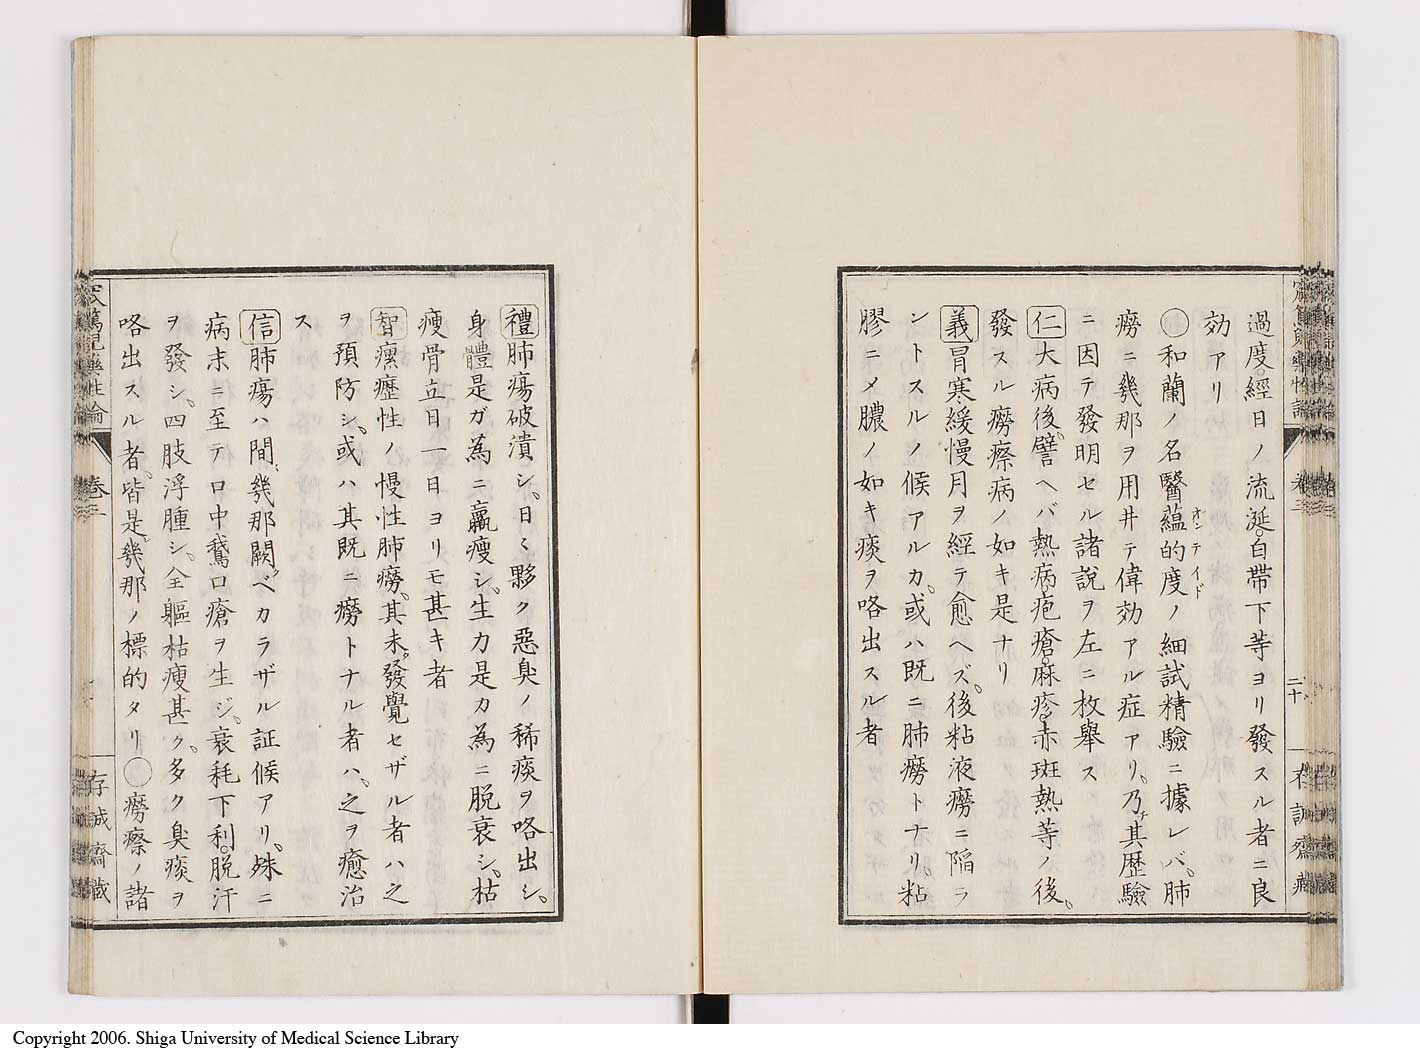 過度。經日ノ流涎。白帶下等ヨリ發スル者ニ良
効アリ
○和蘭ノ名醫蘊的度ノ細試精驗ニ據レバ。肺
オンテイド
癆ニ幾那ヲ用井テ偉効アル症アリ。乃チ其歴驗
ニ因テ發明セル諸説ヲ左ニ枚舉ス
仁大病後。譬ヘバ熱病。疱瘡。麻疹。赤斑熱等ノ後。
發スル癆瘵病ノ如キ是ナリ
義冒寒緩慢月ヲ經テ愈ヘズ。後粘液癆ニ陷ラ
シトスルノ候アルカ。或ハ既ニ肺癆トナリ。粘
膠ニメ膿ノ如キ痰ヲ咯出スル者
卷三
二十
存誠齋藏
禮肺瘍破潰シ。日々夥ク惡臭ノ稀痰ヲ咯出シ。
身體是ガ為ニ羸瘦シ。生力是カ為ニ脱衰シ。枯
瘦骨立日一日ヨリモ甚キ者
智瘰癧性ノ慢性肺癆。其未發覺セザル者ハ之
ヲ預防シ。或ハ其既ニ癆トナル者ハ。之ヲ癒治
ス
信肺瘍ハ間幾那闕ベカラザル証候アリ。殊ニ
病末ニ至テ口中鵞口瘡ヲ生ジ。衰耗下利。脱汗
ヲ發シ。四肢浮腫シ。全軀枯瘦甚ク。多ク臭痰ヲ
咯出スル者。皆是幾那ノ標的タリ○癆瘵ノ諸
篤兒藥性論
卷三
存誠齋藏
Copyright 2006. Shiga University of Medical Science Library